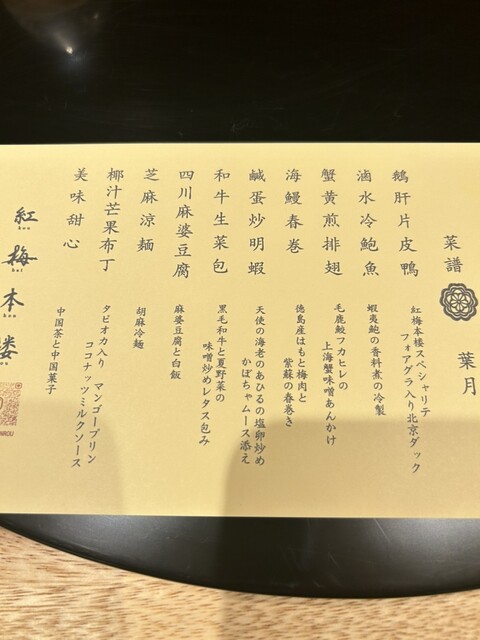 菜譜
葉月
鵝肝片皮鴨
紅梅本楼スペシャリテ
フォアグラ入り北京ダック
滷水冷鮑魚
蝦夷鮑の香料煮の冷製
蟹黄煎排翅
毛鹿鮫フカヒレの
上海蟹味噌あんかけ
海鰻春巻
徳島産はもと梅肉と
紫蘇の春巻き
鹹蛋炒明蝦
天使の海老のあひるの塩卵炒め
かぼちゃムース添え
和牛生菜包
黒毛和牛と夏野菜の
味噌炒めレタス包み
四川麻婆豆腐
麻婆豆腐と白飯
芝麻涼麺
胡麻冷麺
椰汁芒果布丁
タピオカ入り マンゴープリン
ココナッツミルクソース
美味甜心
中国茶と中国菓子
紅梅本楼